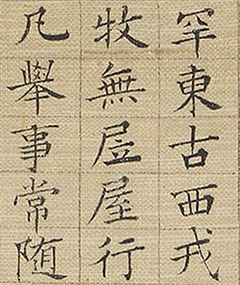 罕東古西戎
牧無㞐屋行
凡舉事常随